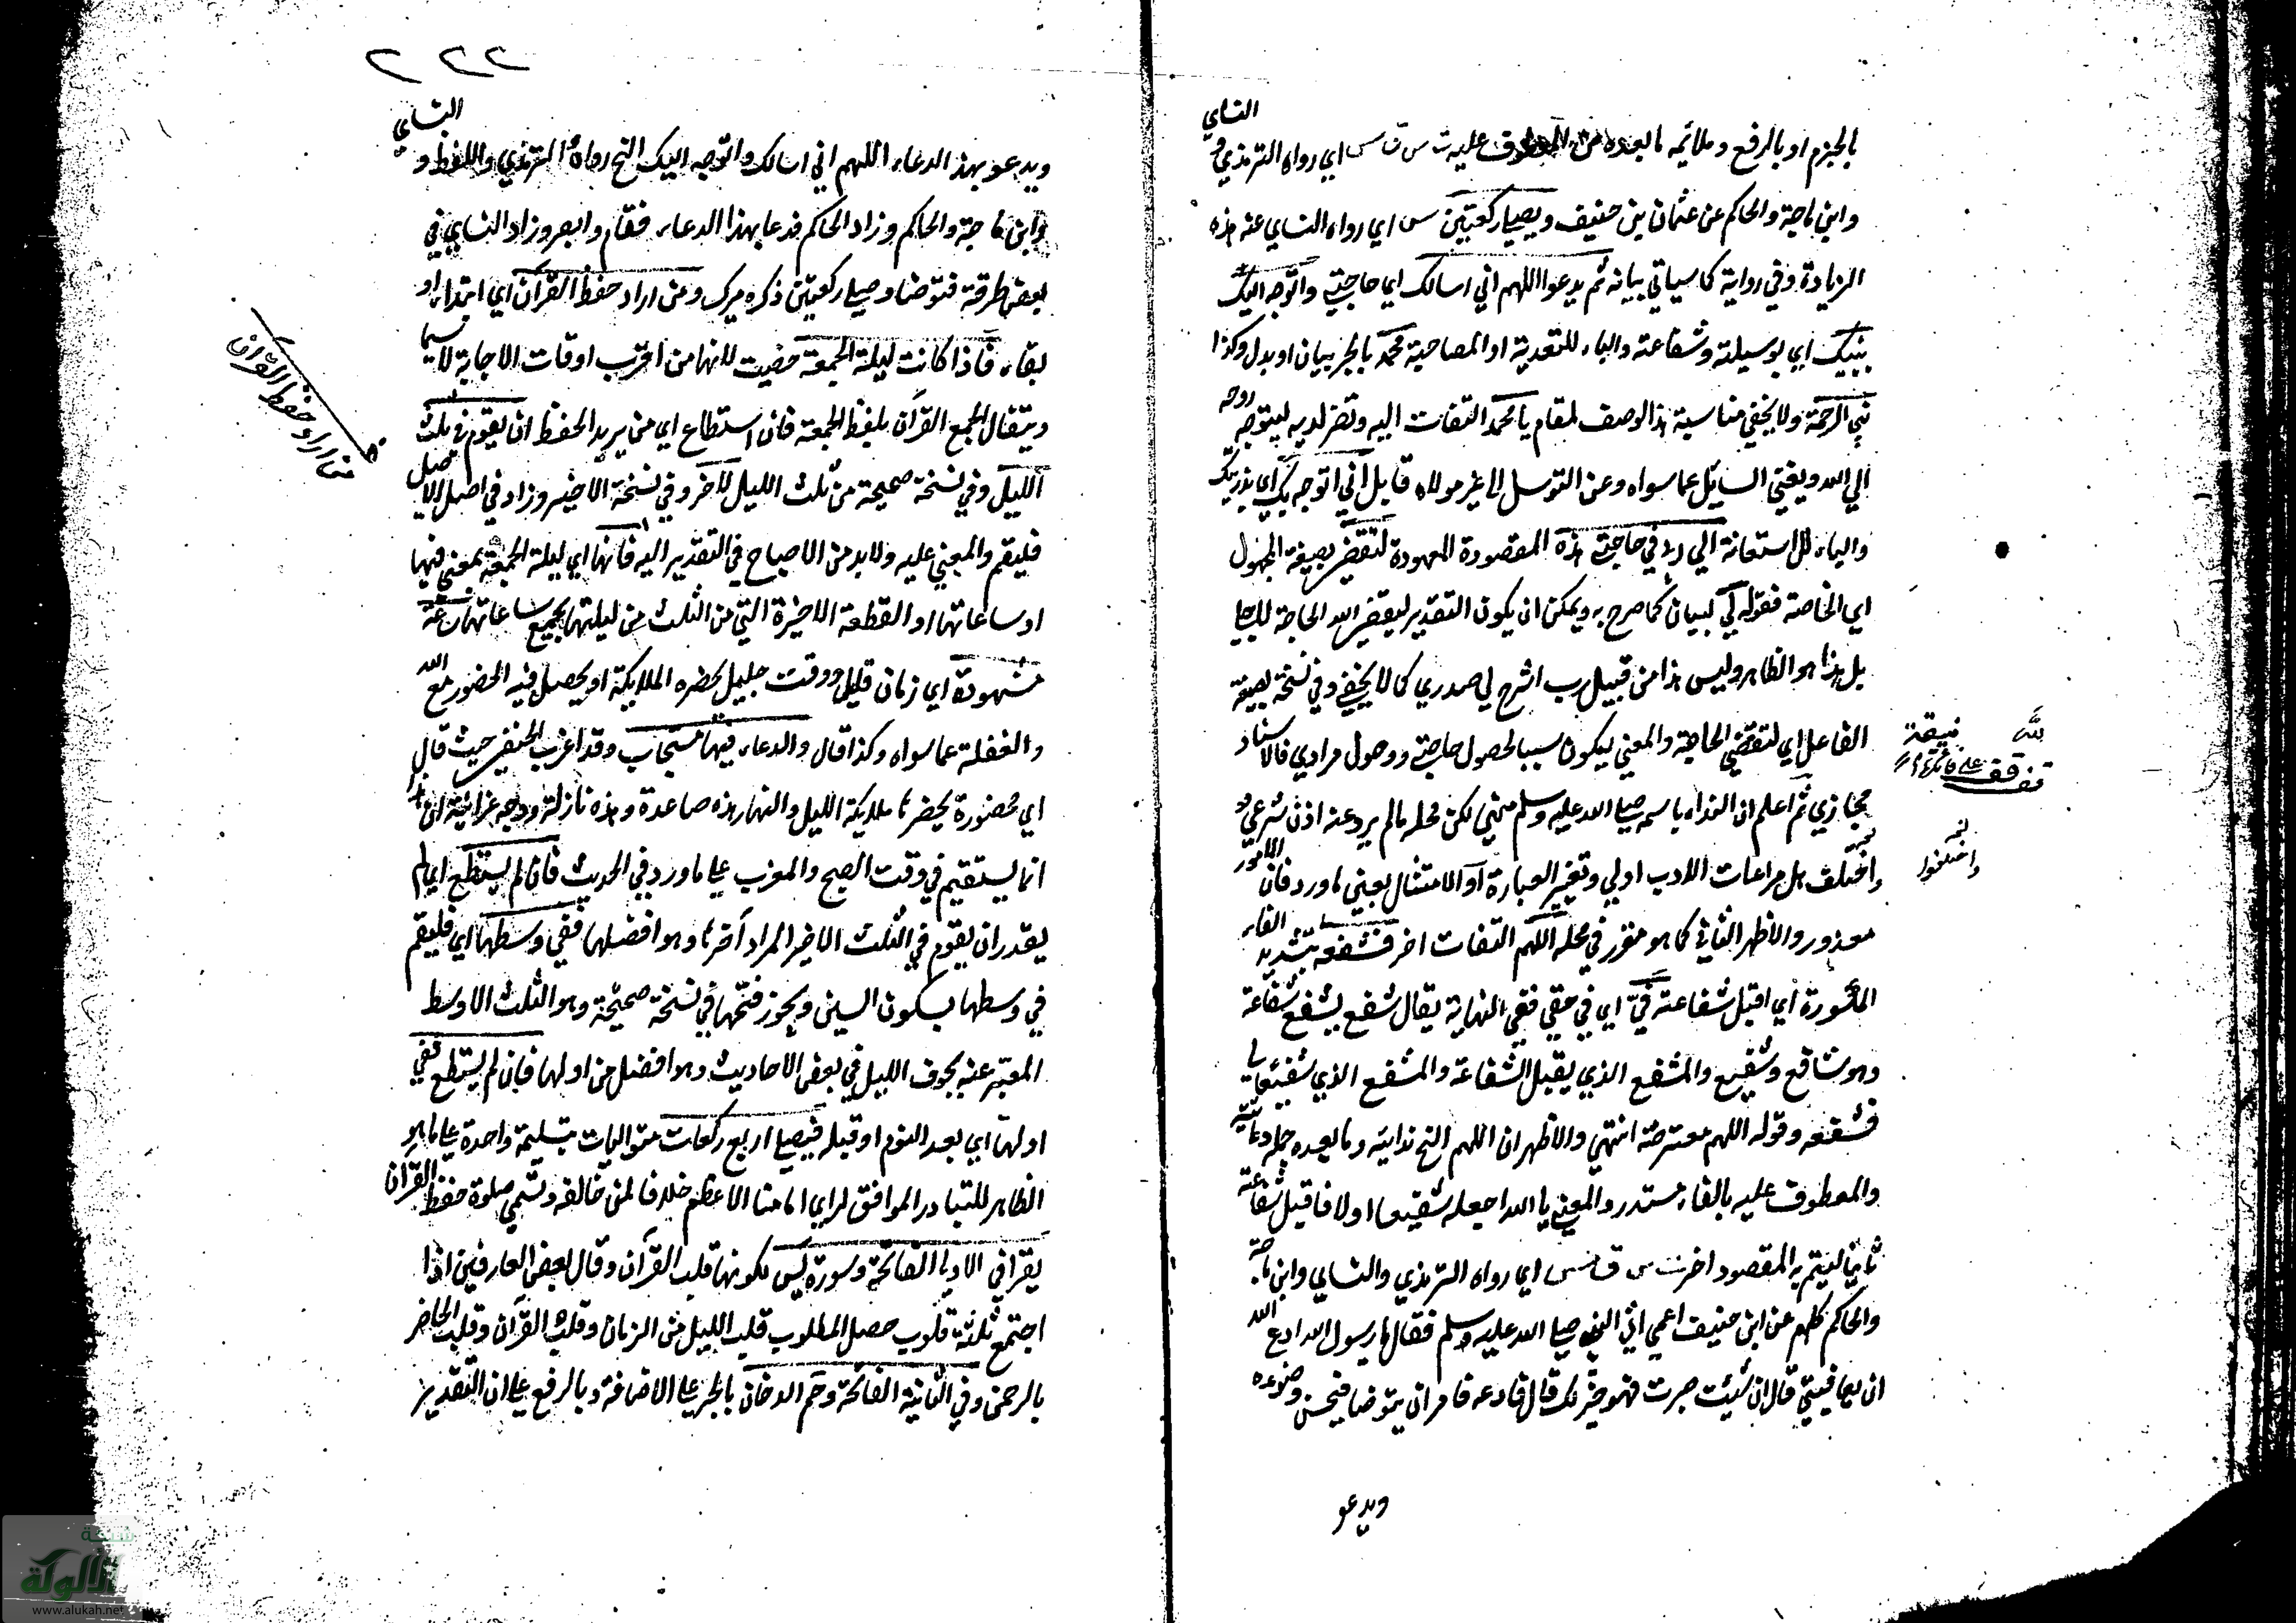 بالجزم او بالرفع وملائمه ما بعده من المعطوف عليه ت س ق س اي رواه الترمذي والنساي
وابن ماجة والحاكم عن عثمان بن حنيف ويصلي ركعتين س اي رواه النساي عنه هذه
الزيادة وفي رواية كما سياتي بيانه ثم يدعوا اللهم اني اسالك اي حاجتي واتوجه اليك
بنبيك اي بوسيلة وشفاعته والباء للتعدية او المصاحبة محمد بالجر بيان او بدل وكذا
نبي الرحمة ولا يخفى مناسبة هذا الوصف لمقام يا محمد التفات اليه وتضر لديه ليتوجه روحه
الي الله ويغني السائل عما سواه وعن التوسل الى غير مولاه قايل اني اتوجه بك اي بذريتك
والباء للاستعانة الي ربي في حاجتي هذه المقصودة المعهودة لتقضى بصيغة المجهول
اي الخاصة فقوله لي لبيان كما صرح به ويمكن ان يكون التقدير ليقضى الله الحاجة لاجلي
بل هذا هو الظاهر وليس هذا من قبيل رب اشرح لي صدري كما لا يخفى وفي نسخة بصيغة
الفاعل اي لتقضي الحاجة والمعني ليكون سببا لحصول حاجتي ووصول مرادي فالاسناد
مجازي ثم اعلم ان النداء باسمه صلى الله عليه وسلم منهي لكن محله ما لم يرد عنه اذن شرعي
واختلف هل مراعات الادب اولي وتغير العبارة او الامتثال بعيني ما ورد فان المامور
معذور والاظهر الثاني كما هو مقرر في محله اللهم التفات اخر فشفعه بتشديد الفاء
المكسورة اي اقبل شفاعته في اي في حقي ففي النهاية يقال شفع يشفع شفاعة
وهو شافع وشفيع والمشفع الذي يقبل الشفاعة والمشفع الذي
فشفعه وقوله اللهم معترضة انتهى والاظهر ان اللهم الخ ندائية وما بعده جملة دعائية
والمعطوف عليه بالفاء مستدر والمعنى يا الله اجعله شفيعا اولا فاقبل شفاعته
ثانيا ليتم به المقصود اخر ت س ق مس اي رواه الترمذي والنساي وابن ماجة
والحاكم كلهم عن ابن حنيف اعمى اتى النبي صلى الله عليه وسلم فقال يا رسول الله ادع الله
ان يعافيني قال ان شيئت صبرت فهو خير لك قال فادعه فامر ان يتوضا فيحسن وضوءه
ويدعو
لله
تفقه
على
واختلفوا
٢٢٢
ويدعو بهذ الدعاء اللهم اني اسالك واتوجه اليك الخ رواه الترمذي واللفظ والنساي
وابن ماجة والحاكم وزاد الحاكم فدعا بهذا الدعاء فقام وابصر وزاد النساي في
بعض طرقه فتوضا وصلى ركعتين ذكره ميرك ومن اراد حفظ القرآن اي ابتداء او
بقاء فاذا كانت ليلة الجمعة خصت لانها من اقرب اوقات الاجابة لا سيما
ويتفال لجمع القرآن بلفظ الجمعة فان استطاع اي من يريد الحفظ ان يقوم في ثلث
الليل وفي نسخة صحيحة من ثلث الليل الآخر وفي نسخة الاخير وزاد في اصل الاصيل
فليقم والمعني عليه ولا بد من الاصباح في التقدير اليه فانها اي ليلة الجمعة بمعنى فيها
او ساعاتها او القطعة الاخيرة التي من الثلث من ليلتها بجميع ساعاتها ساعة
مشهودة اي زمان قليل ووقت جليل يحضره الملايكة او يحصل فيه الحضور مع الله
والغفلة عما سواه وكذا قال والدعاء فيها مستجاب وقد اغرب الحنفي حيث قال
اي محضورة يحضرها ملايكة الليل والنهار هذه صاعدة وهذه نازلة ووجه غرابته ان هذا
انما يستقيم في وقت الصبح والمغرب على ما ورد في الحديث فان لم يستطع اي لم
يقدر ان يقوم في الثلث الاخير المراد آخرها وهو افضلها ففي وسطها اي فليقم
في وسطها بسكون السين ويجوز فتحها في نسخة صحيحة وهو الثلث الاوسط
المعبر عنه بجوف الليل في بعض الاحاديث وهو افضل من اولها فان لم يستطع ففي
اولها اي بعد النوم او قبله فيصلي اربع ركعات متواليات بتسليمة واحدة على ما هو
الظاهر للتبادر الموافق لراي امامنا الاعظم خلافا لمن خالفه وتسمى صلوة حفظ القرآن
يقرا في الاولى الفاتحة وسورة يس لكونها قلب القرآن وقال بعض العارفين اذا
اجتمع ثلثة قلوب حصل المطلوب قلب الليل من الزمان وقلب القرآن وقلب الحاضر
بالرحمن وفي الثانية الفاتحة وحم الدخان بالجر على الاضافة وبالرفع على ان التقدير
من اراد حفظ القرآن
شبكة
الألوكة
www.alukah.net